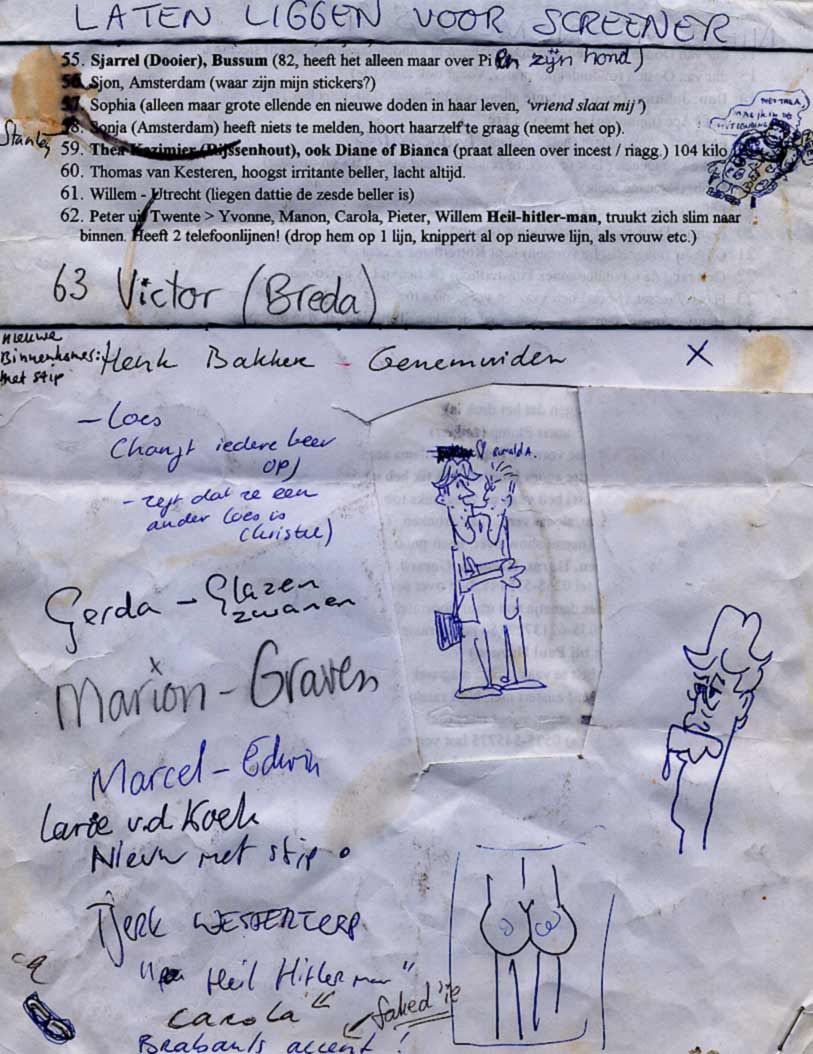 LATEN LIGGEN VOOR SCREENER
55. Sjarrel (Dooier), Bussum (82, heeft het alleen maar over Pi en zijn hond)
56. Sjon, Amsterdam (waar zijn mijn stickers?)
57. Sophia (alleen maar grote ellende en nieuwe doden in haar leven, 'vriend slaat mij')
Stanley
58. Sonja (Amsterdam) heeft niets te melden, hoort haarzelf te graag (neemt het op).
59. Thea Kazimier (Rijssenhout), ook Diane of Bianca (praat alleen over incest / riagg.) 104 kilo
60. Thomas van Kesteren, hoogst irritante beller, lacht altijd.
61. Willem - Utrecht (liegen dattie de zesde beller is)
62. Peter uit Twente > Yvonne, Manon, Carola, Pieter, Willem Heil-hitler-man, truukt zich slim naar
binnen. Heeft 2 telefoonlijnen! (drop hem op 1 lijn, knippert al op nieuwe lijn, als vrouw etc.)
63 Victor (Breda)
nieuwe
Binnenkomer:
met stip
Henk Bakker - Genemuiden X
- Loes
Changt iedere keer
op)
- zegt dat ze een
ander Loes is
Christel)
Ronald A.
Gerda - Glazen
zwanen
Marion - Graven
Marcel - Edwin
v.d. Koek
Nieuw met stip
Tjerk WESTERTERP
"Heil Hitler man"
Carola"
faked 'ie
Brabants accent!